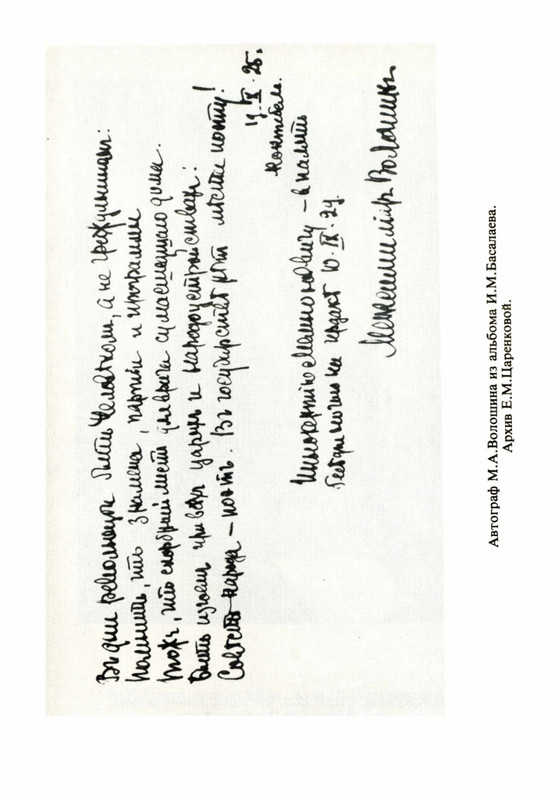 Въ дни революцiи быть Человѣком, а не Гражданином:
Помнить, что знамена, партии и программы
То же, что скорбный листъ для врача сумасшедшаго дома.
Быть изгоем при всѣхъ царяхъ и народоустройствахъ:
Совѣсть народа — поэтъ. Въ государствѣ нѣтъ мѣста поэту!
17.X.25.
Коктебель.
Иннокентiю Мемноновичу — в память
10.IX.24.
Максимилiан Волошинъ
Автограф М.А.Волошина из альбома И.М.Басалаева.
Архив Е.М.Царенковой.